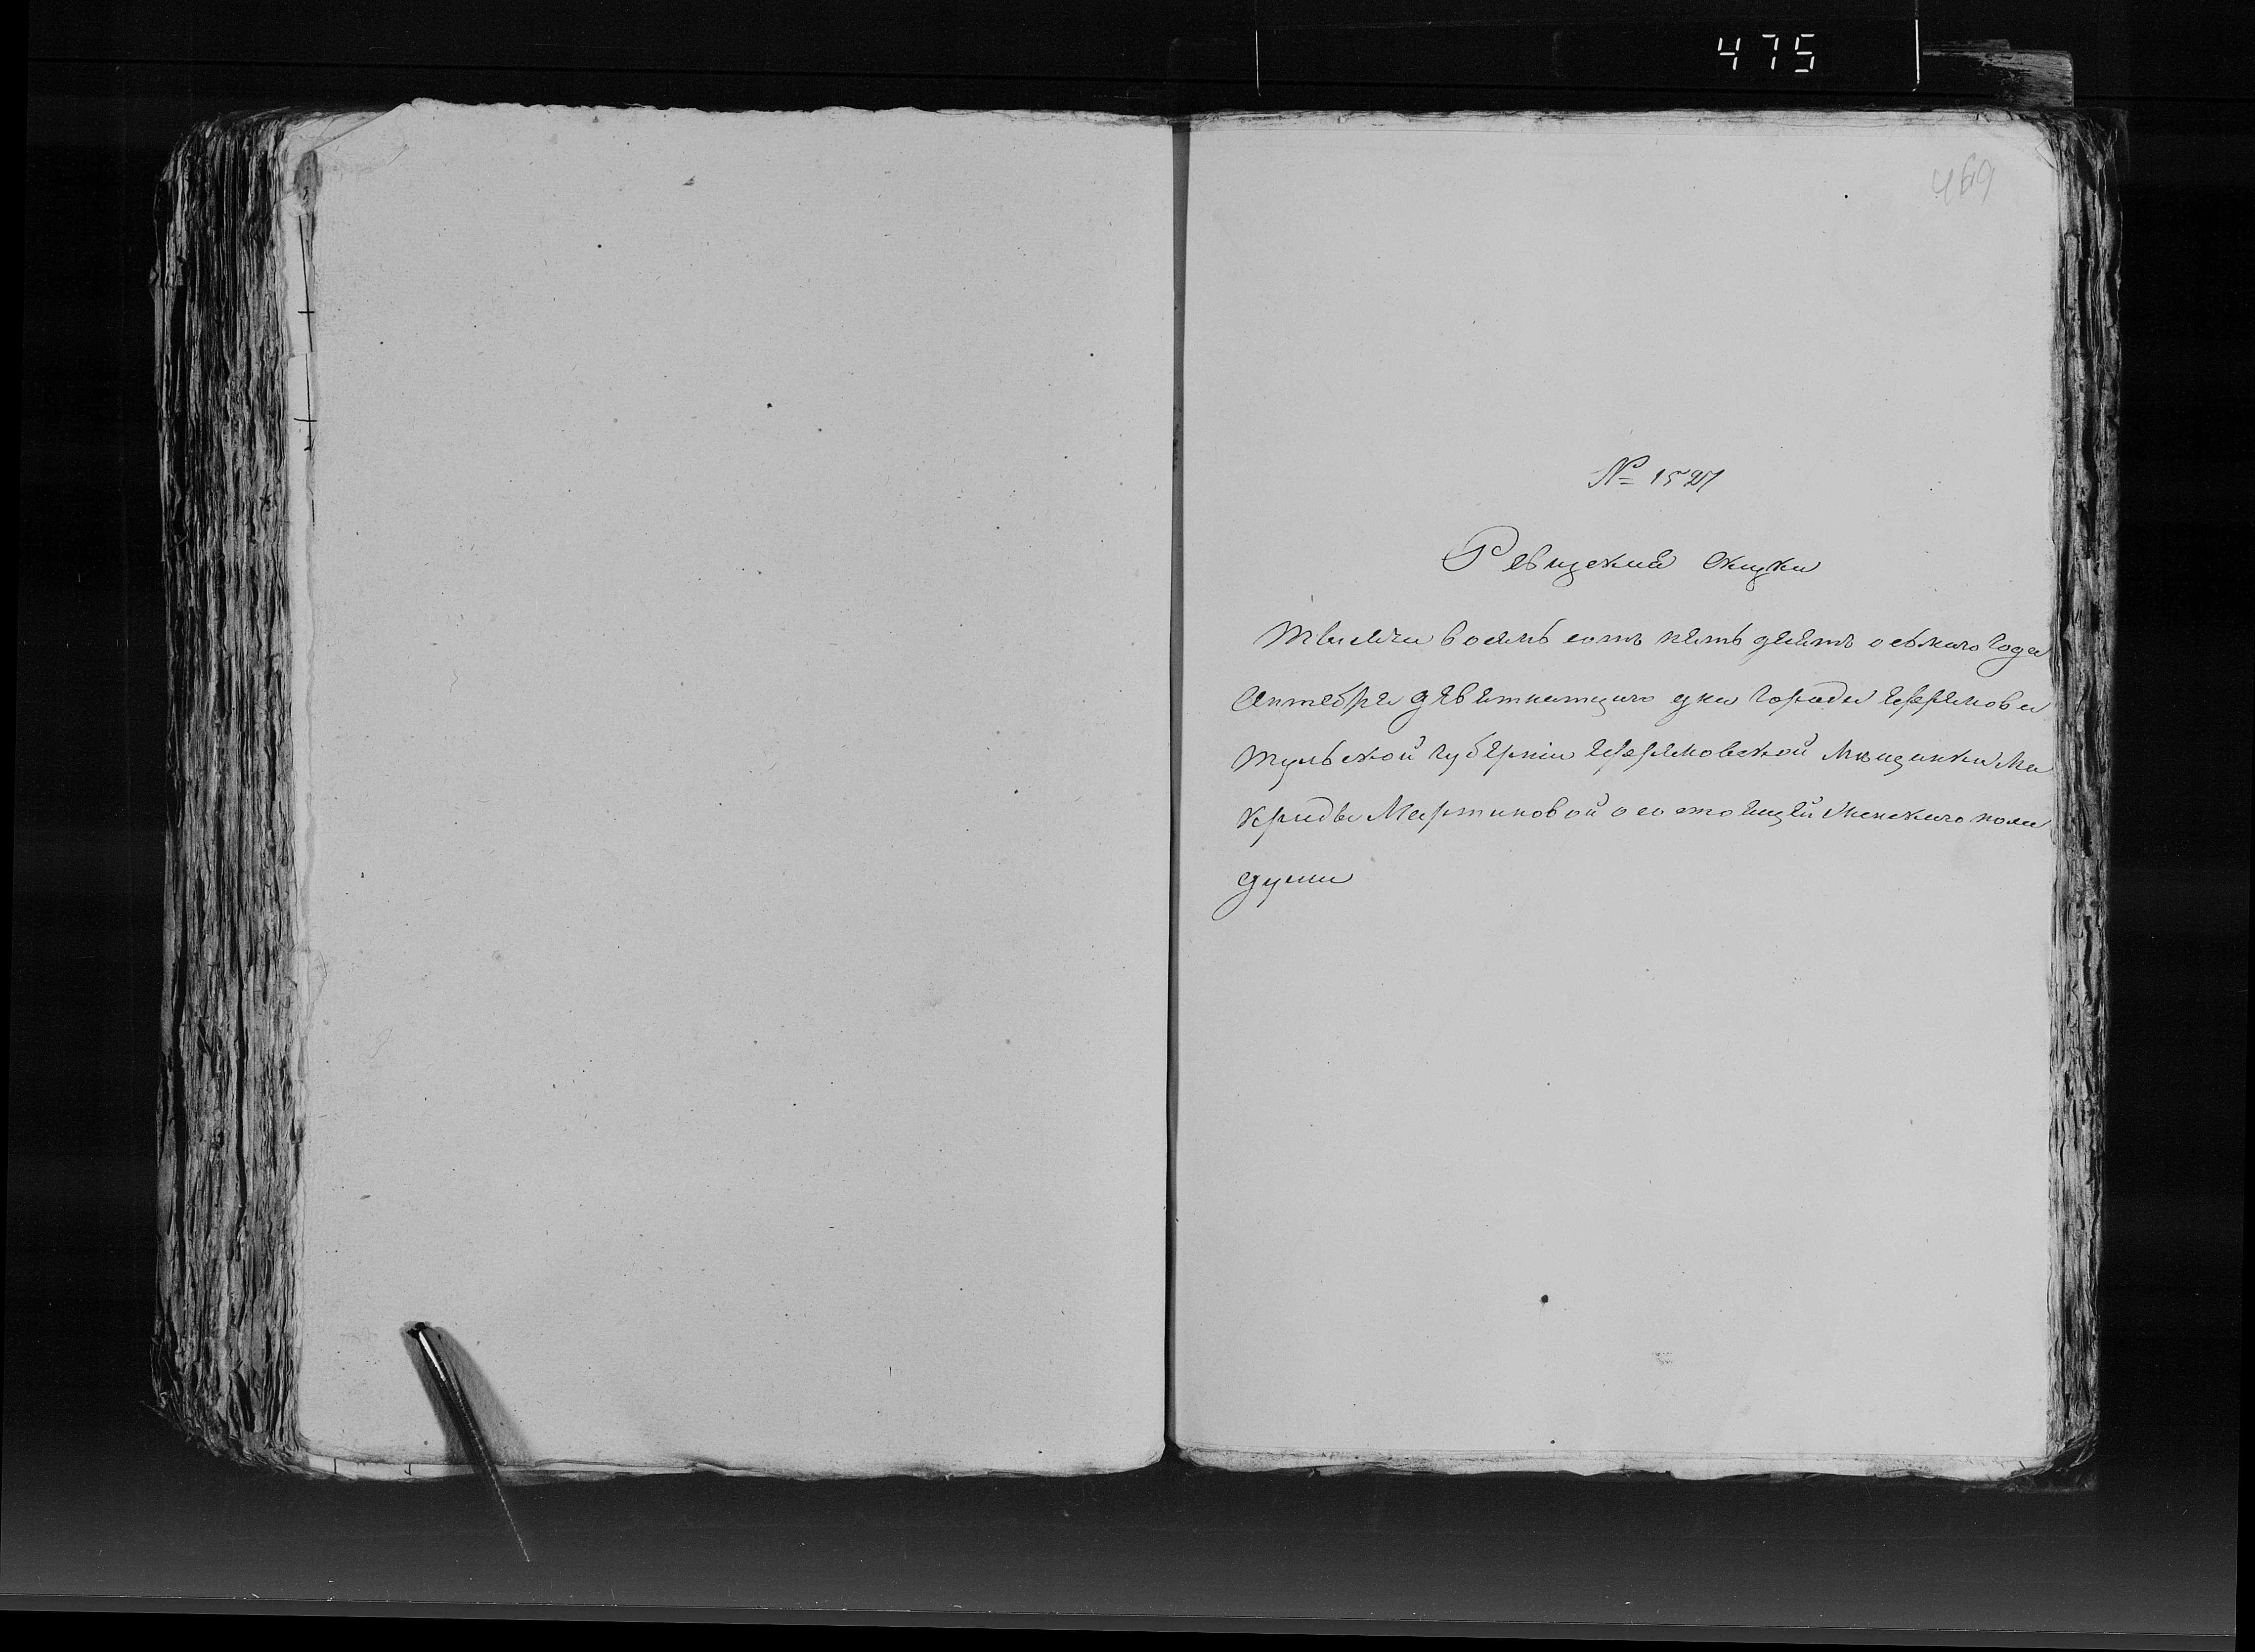 475
469
№ 1527
Ревизская скаска
Тысяча восемь сотъ пять десятъ осьмаго года
Октября девятнатцаго дня города Ефремова
Тульской губерніи Ефремовской Мѣщанки Ма
криды Мартиновой о состоящей женскаго пола
души